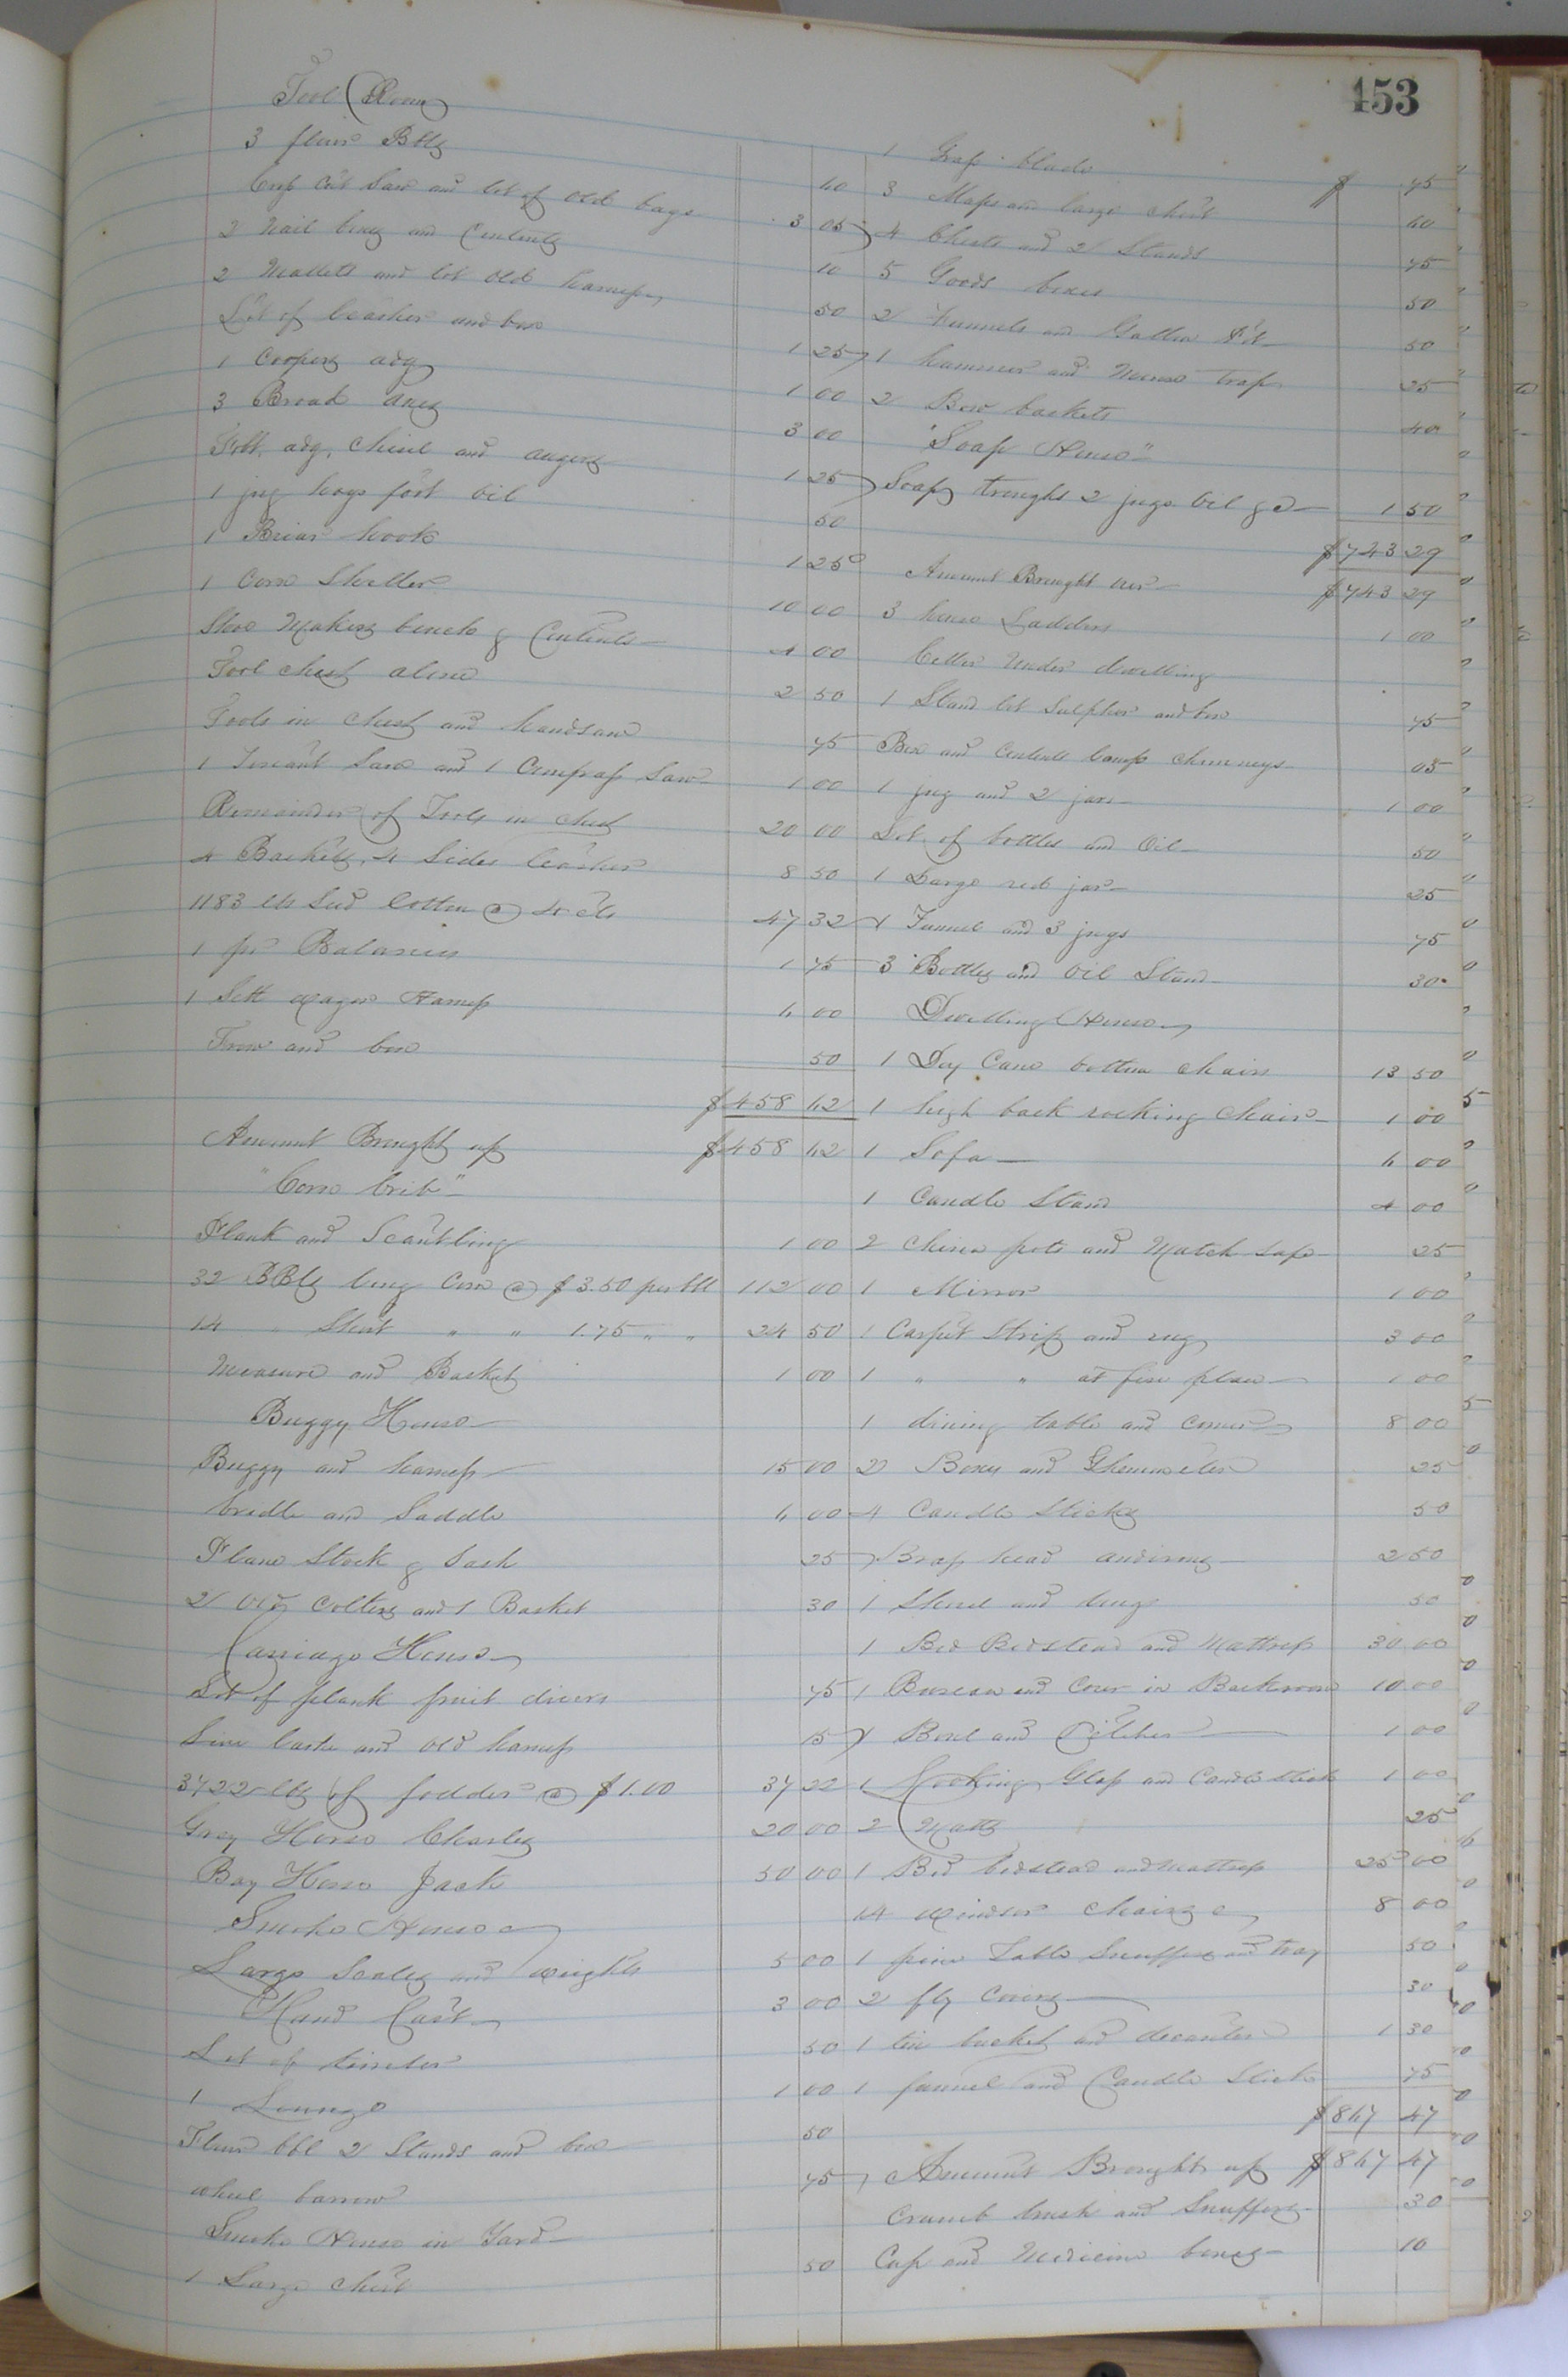 453
Tool Room
3 flour Bbls
Cross Cut Saw and lot of old bags 60
2 Nail boxes and Contents 3 05
2 Mallets and lot old harness 10
Lot of leather and box 50
1 Coopers adz 1 25
3 Broad axes 1 00
Foot adz, Chisel and augers 3 00
1 jug hogs foot oil 1 25
1 Briar hook 50
1 Corn Sheller 1 25
Shoe Makers bench & Contents 10 00
Tool chest alone 4 00
Tools in chest and handsaw 2 50
1 Tenant Saw and 1 Compass Saw 75
Remainder of Tools in chest 1 00
4 Baskets, 4 Sides leather 20 00
1183 lbs Seed Cotton @ 4 cts 8 50
1 pr Balances 47 32
1 Sett wagon Harness 1 75
and box 6 00
50
$458 62
Amount Brought up $458 62
"Corn Crib"
Plank and Scantling 1 00
32 BBls long Corn @ $3.50 per bbl 112 00
14 " Short " " 1.75 " " 24 50
Measure and Basket 1 00
Buggy House
Buggy and harness 15 00
bridle and Saddle 6 00
Plane Stock & Sash 25
2 old Colters and 1 Basket 30
Carriage House
Lot of plank fruit dryers 75
and old harness 15
3722 lbs of fodder @ $1.00 37 22
Grey Horse Charley 20 00
Bay Horse Jack 50 00
Smoke House
Large Scales and weights 5 00
Hand Cart 3 00
Lot of timber 50
1 Lounge 1 00
Flour bbl 2 Stands and box 50
wheel barrow 75
Smoke House in Yard
1 Large Chest 50
1 Grass blade $ 75
3 Maps and large chest 60
4 Chests and 2 Stands 75
5 Goods boxes 50
2 Funnels and Gallon Pot 50
1 hammer and Mouse trap 25
2 Bow baskets 40
"Soap House"
Soap troughs 2 jugs Oil &c 1 50
$743 29
Amount Brought over $743 29
3 house Ladders 1 00
Celler Under dwelling
1 Stand lot Sulpher and box 75
Box and Contents lamp chimneys 05
1 jug and 2 jars 1 00
Lot of bottles and Oil 50
1 Large red jar 25
1 Funnel and 3 jugs 75
3 Bottles and Oil Stand 30
Dwelling House
1 Doz Cane bottom chairs 13 50
1 high back rocking Chair 1 00
1 Sofa 6 00
1 Candle Stand 4 00
2 China pots and Match safe 25
1 Mirror 1 00
1 Carpet Strip and rug 3 00
1 " " at fire place 1 00
1 dining table and cover 8 00
2 Boxes and Thermometer 25
4 Candle Sticks 50
Brass head andirons 2 50
1 Shovel and tongs 50
1 Bed Bedstead and Mattress 30 00
1 Bureau and Cover in Backroom 10 00
1 Bowl and Pitcher 1 00
1 Looking Glass and Candle stick 1 00
2 Matts 25
1 Bed bedstead and mattress 25 00
14 windsor chairs 8 00
1 pine Table Snuffers and tray 50
2 fly Covers 30
1 tin bucket and decanter 1 30
1 funnel and Candle Stick 75
$867 47
Amount Brought up $867 47
Crumb brush and Snuffers 30
Cup and Medicine boxes 10